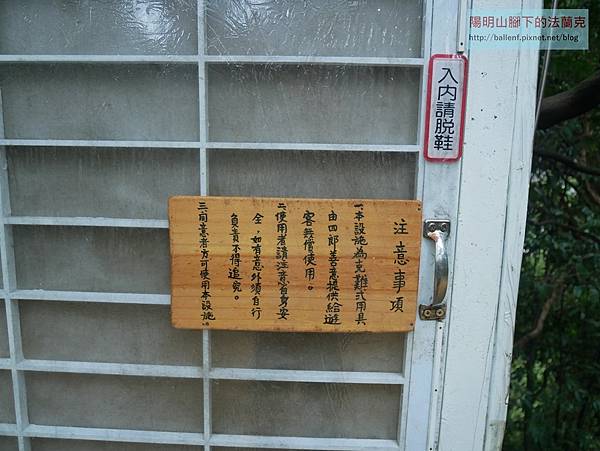 陽明山腳下的法蘭克
http://ballenf.pixnet.net/blog
入內請脱鞋
注意事項
一、本設施為克難式用具
由四郎善意提供給遊
客無償使用。
二、使用者請注意自身安
全，如有意外須自行
負責不得追究。
三、同意者方可使用本設施。